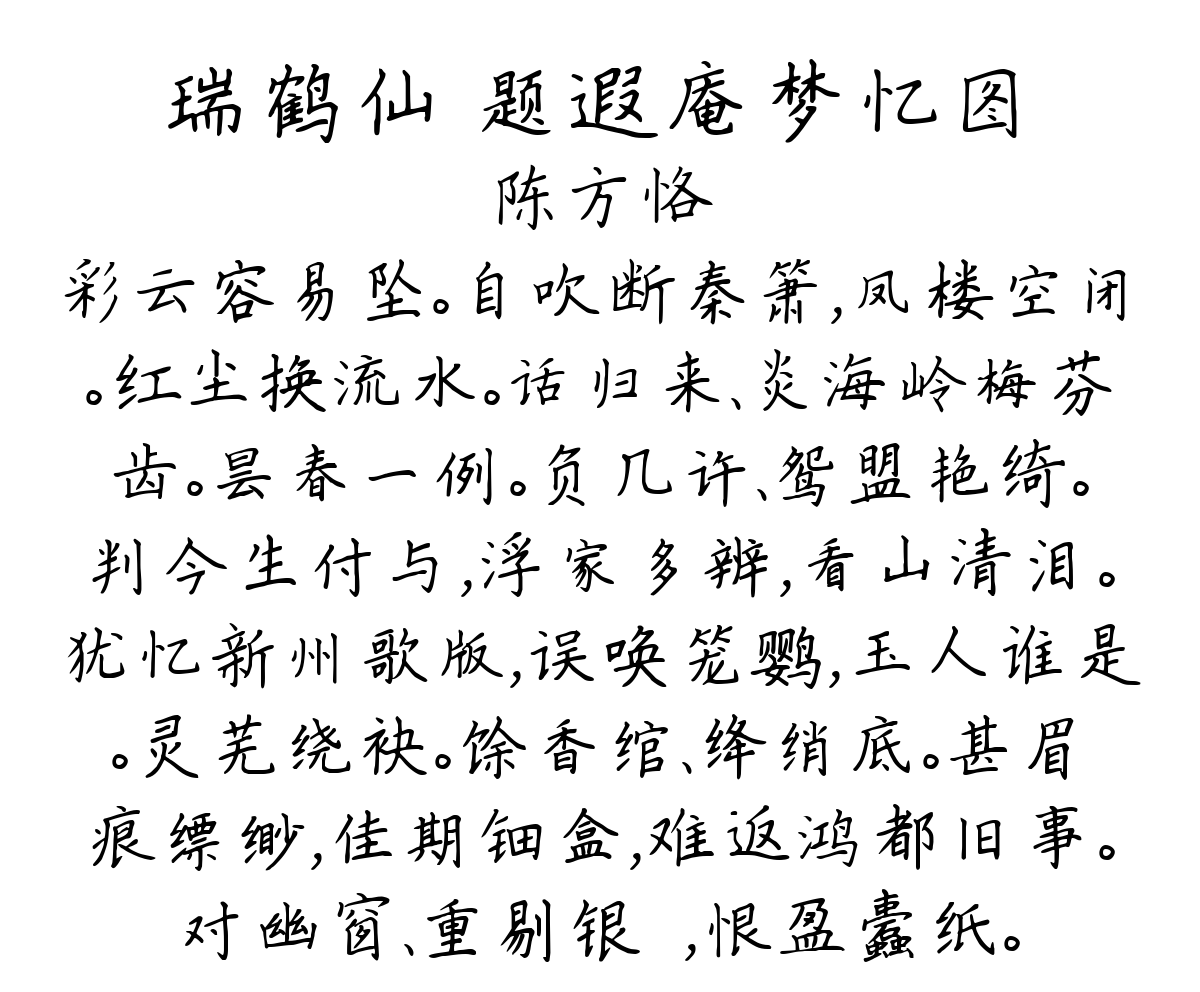 瑞鹤仙 题遐庵梦忆图
陈方恪
彩云容易坠。自吹断秦箫,凤楼空闭
。红尘换流水。话归来、炎海岭梅芬
齿。昙春一例。负几许、鸳盟艳绮。
判今生付与,浮家多辨,看山清泪。
犹忆新州歌版,误唤笼鹦,玉人谁是
。灵芜绕袂。馀香绾、绛绡底。甚眉
痕缥缈,佳期钿盒,难返鸿都旧事。
对幽窗、重剔银 ,恨盈蠹纸。